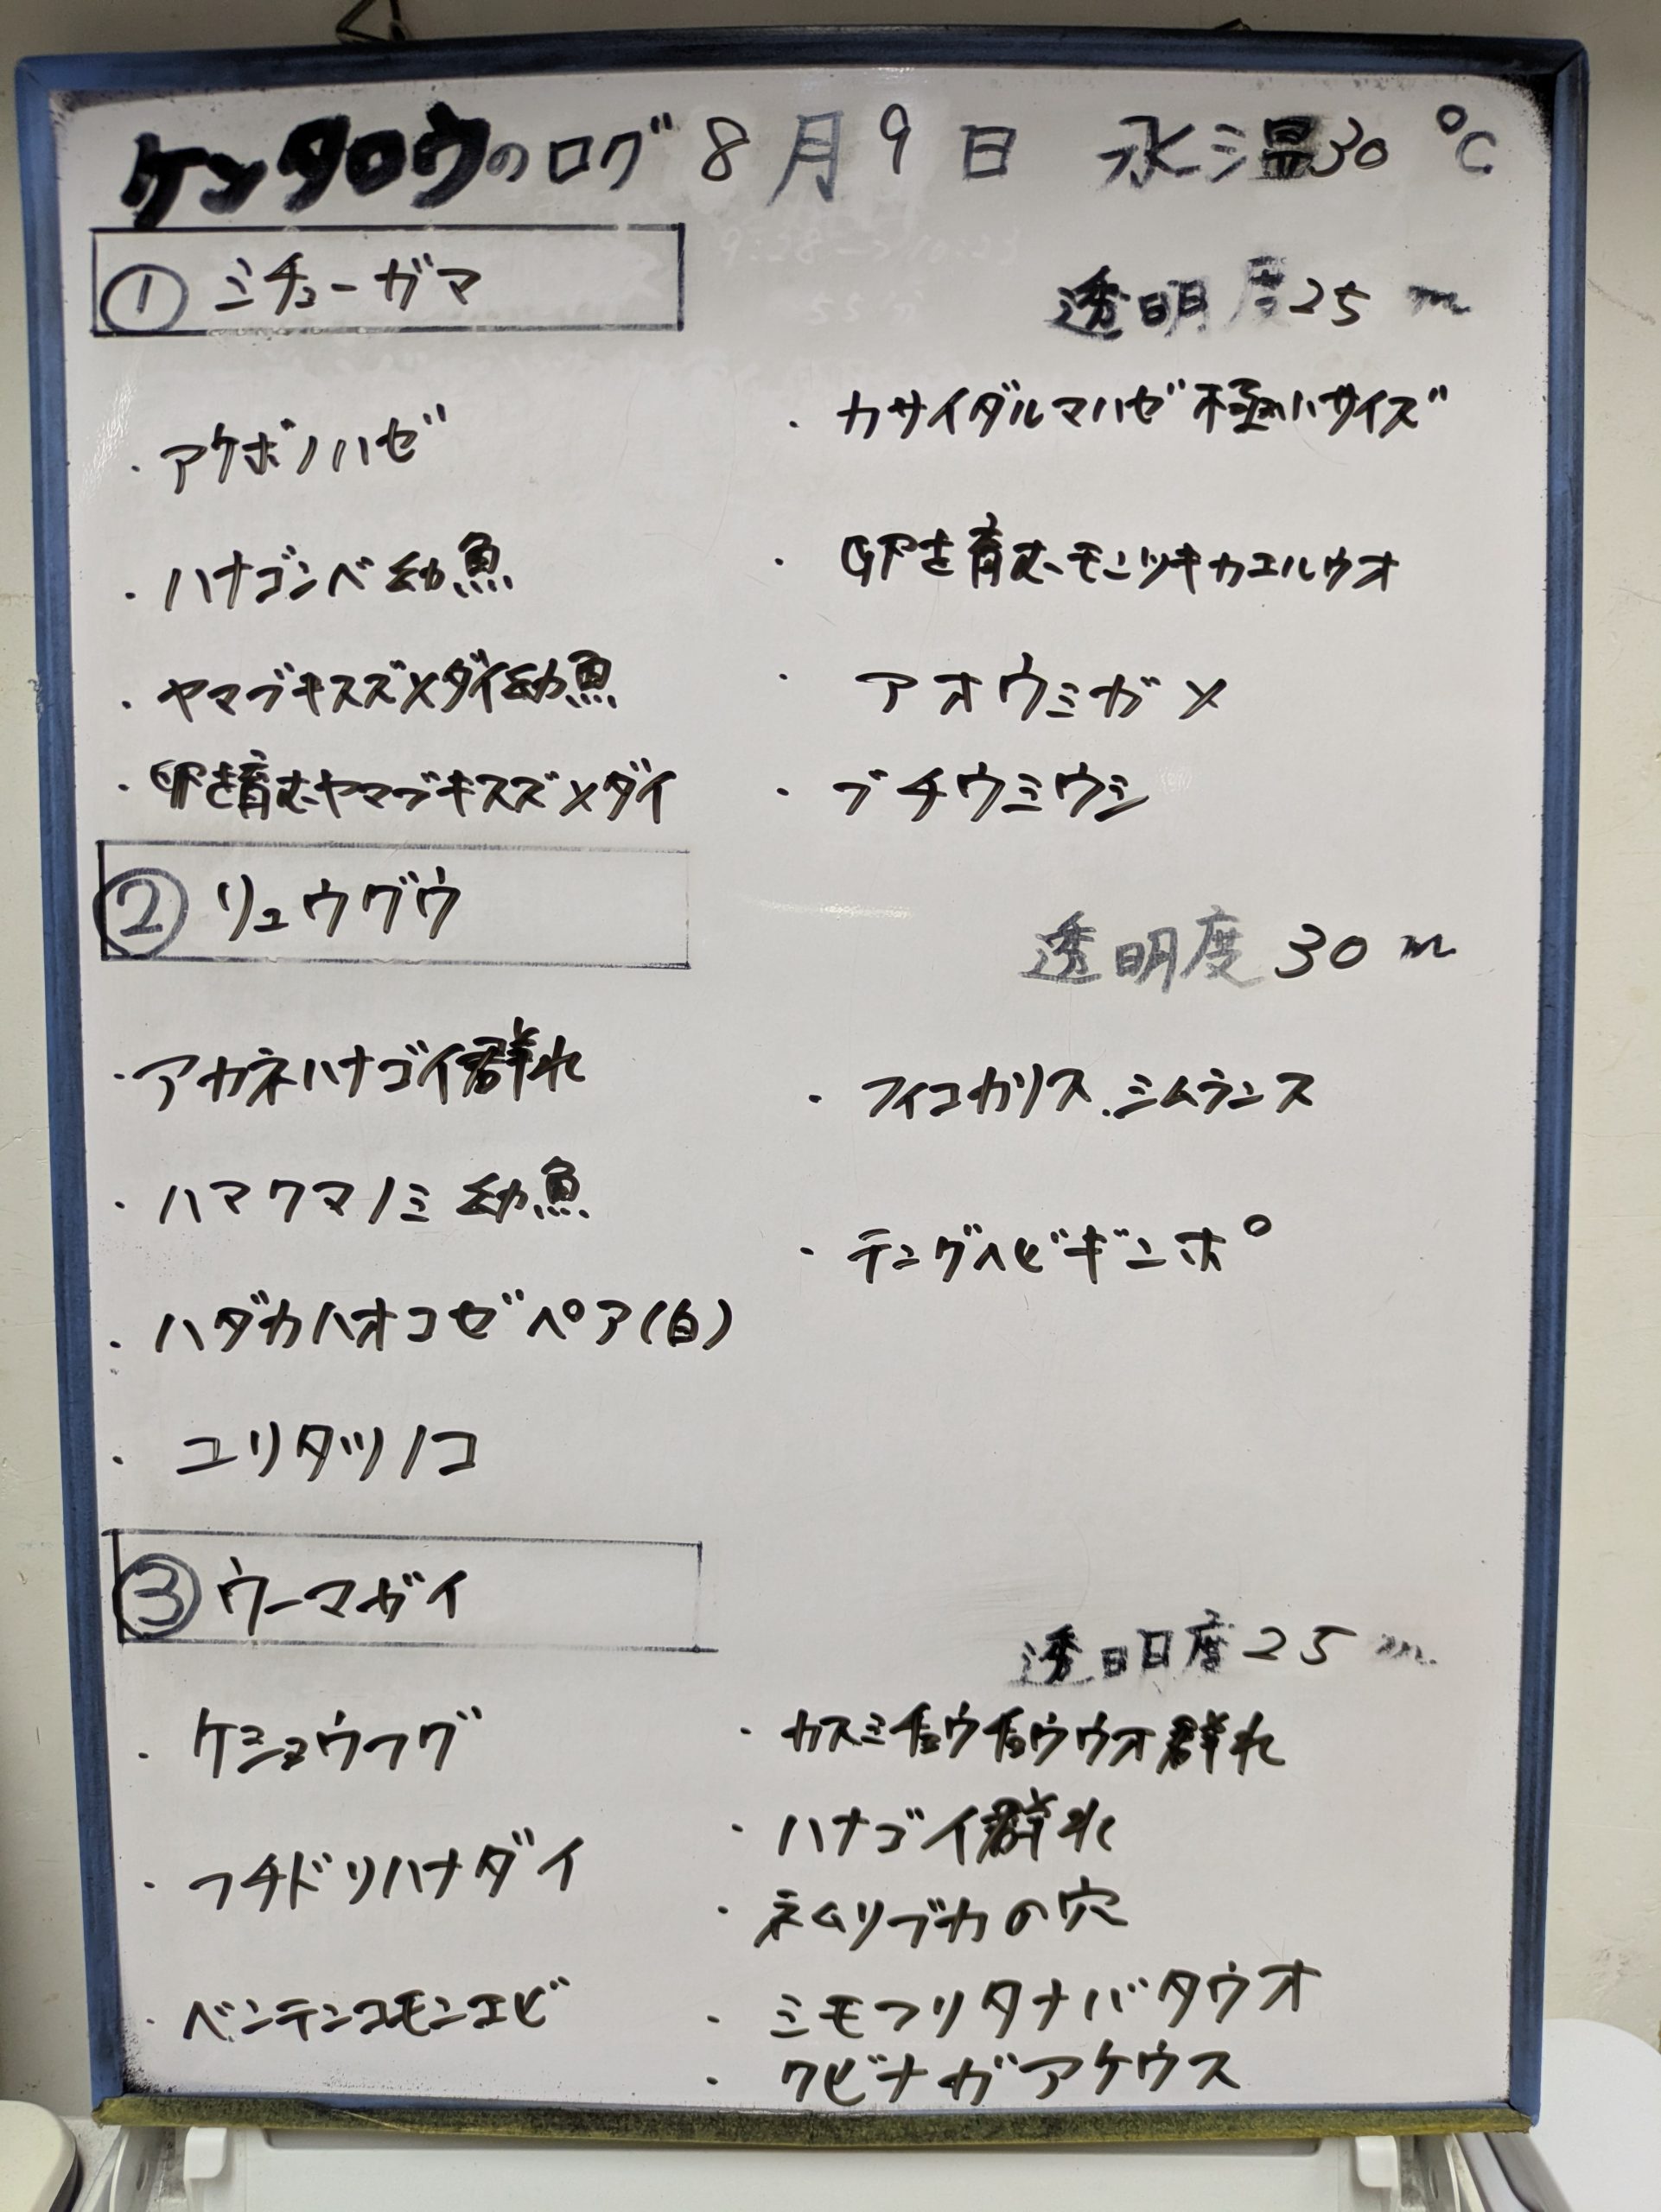 ケンタロウのログ 8月9日 水温30℃
① ミチューガマ
透明度25m
・アケボノハゼ
・ハナゴンベ幼魚
・ヤマブキスズメダイ幼魚
・卵を育むヤマブキスズメダイ
・カサイダルマハゼ極小サイズ
・卵を育むモンツキカエルウオ
・アオウミガメ
・ブチウミウシ
② リュウグウ
透明度30m
・アカネハナゴイ群れ
・ハマクマノミ幼魚
・ハダカハオコゼペア(白)
・ユリタツノコ
・フィコカリス.シムランス
・テングヘビギンポ
③ ウーマガイ
透明度25m
・ケショウフグ
・フチドリハナダイ
・ベンテンコモンエビ
・カスミチョウチョウウオ群れ
・ハナゴイ群れ
・ネムリブカの穴
・シモフリタナバタウオ
・クビナガアケウス